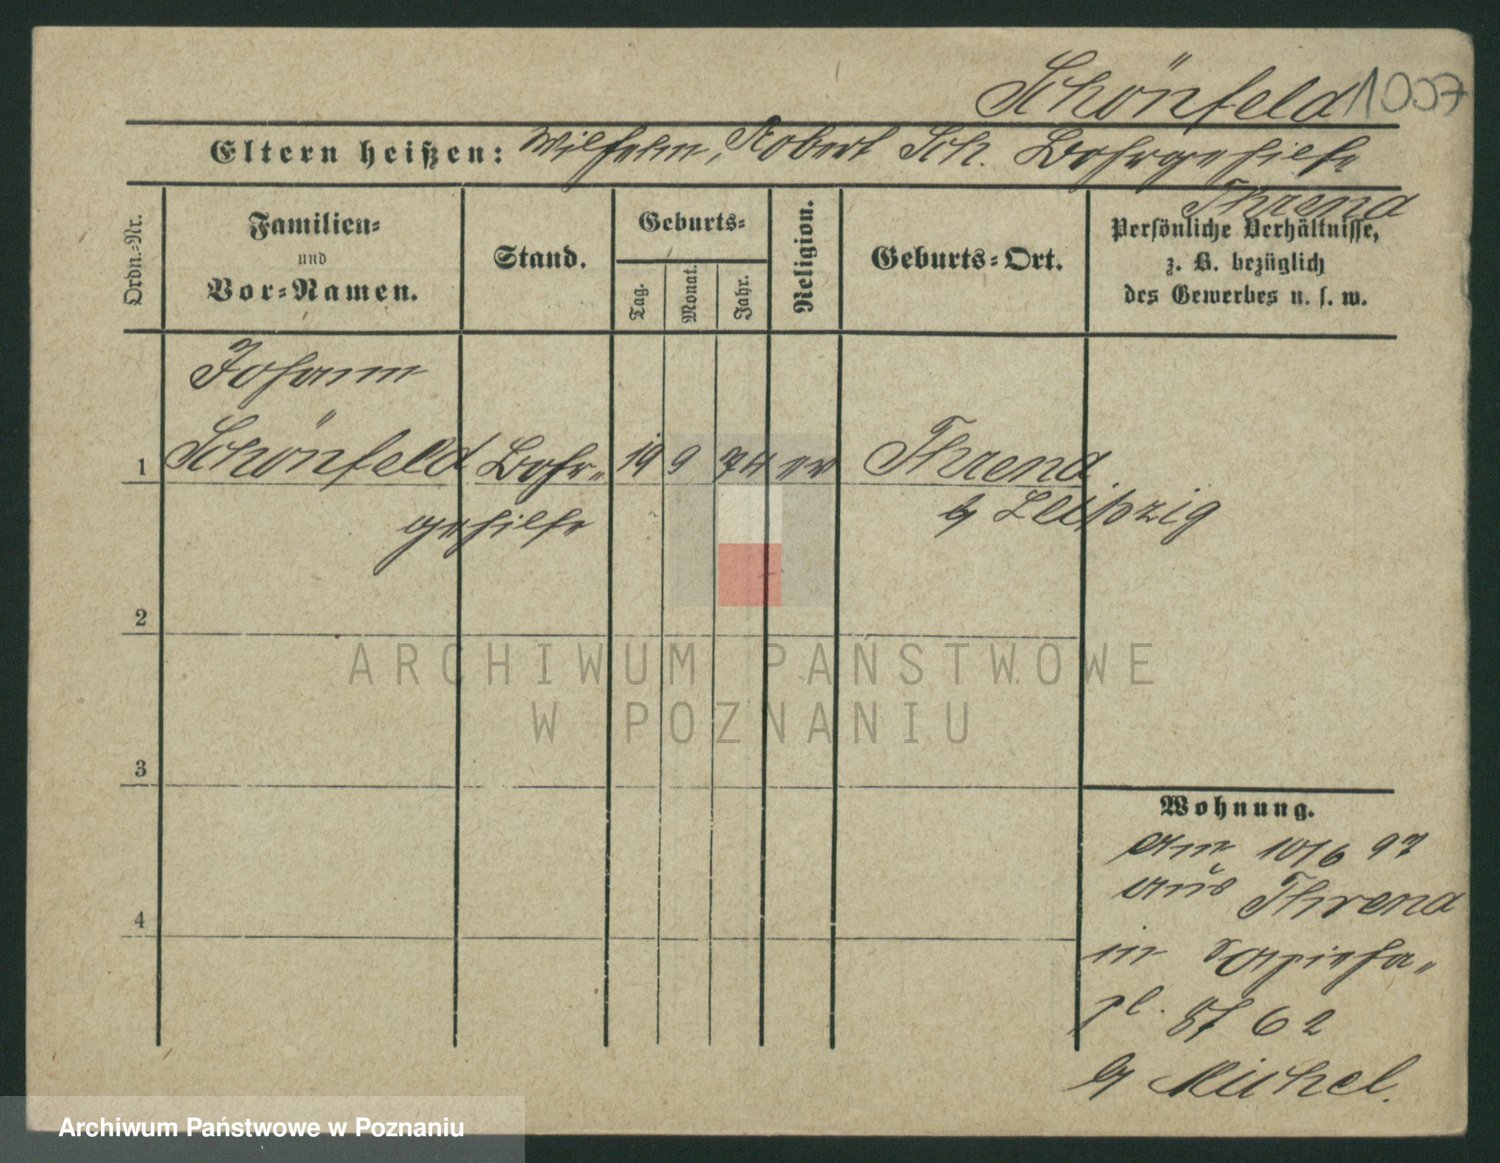 Schönfeld 1007
Eltern heißen: Wilhelm, Robert Sch. Bohrgehilfe
Threna
Ordn.-Nr.
Familien-
und
Vor-Namen.
Stand.
Geburts-
Tag.
Monat.
Jahr.
Religion.
Geburts-Ort.
Persönliche Verhältnisse,
z. B. bezüglich
des Gewerbes u. s. w.
Johann
1 Schönfeld Bohr- 19 9 74 ev Threna
gehilfe b Leipzig
2
ARCHIWUM PAŃSTWOWE
W POZNANIU
3
Wohnung.
am 10/6 97
aus Threna
in Sapieha-
pl.
b Michel.
4
Archiwum Państwowe w Poznaniu